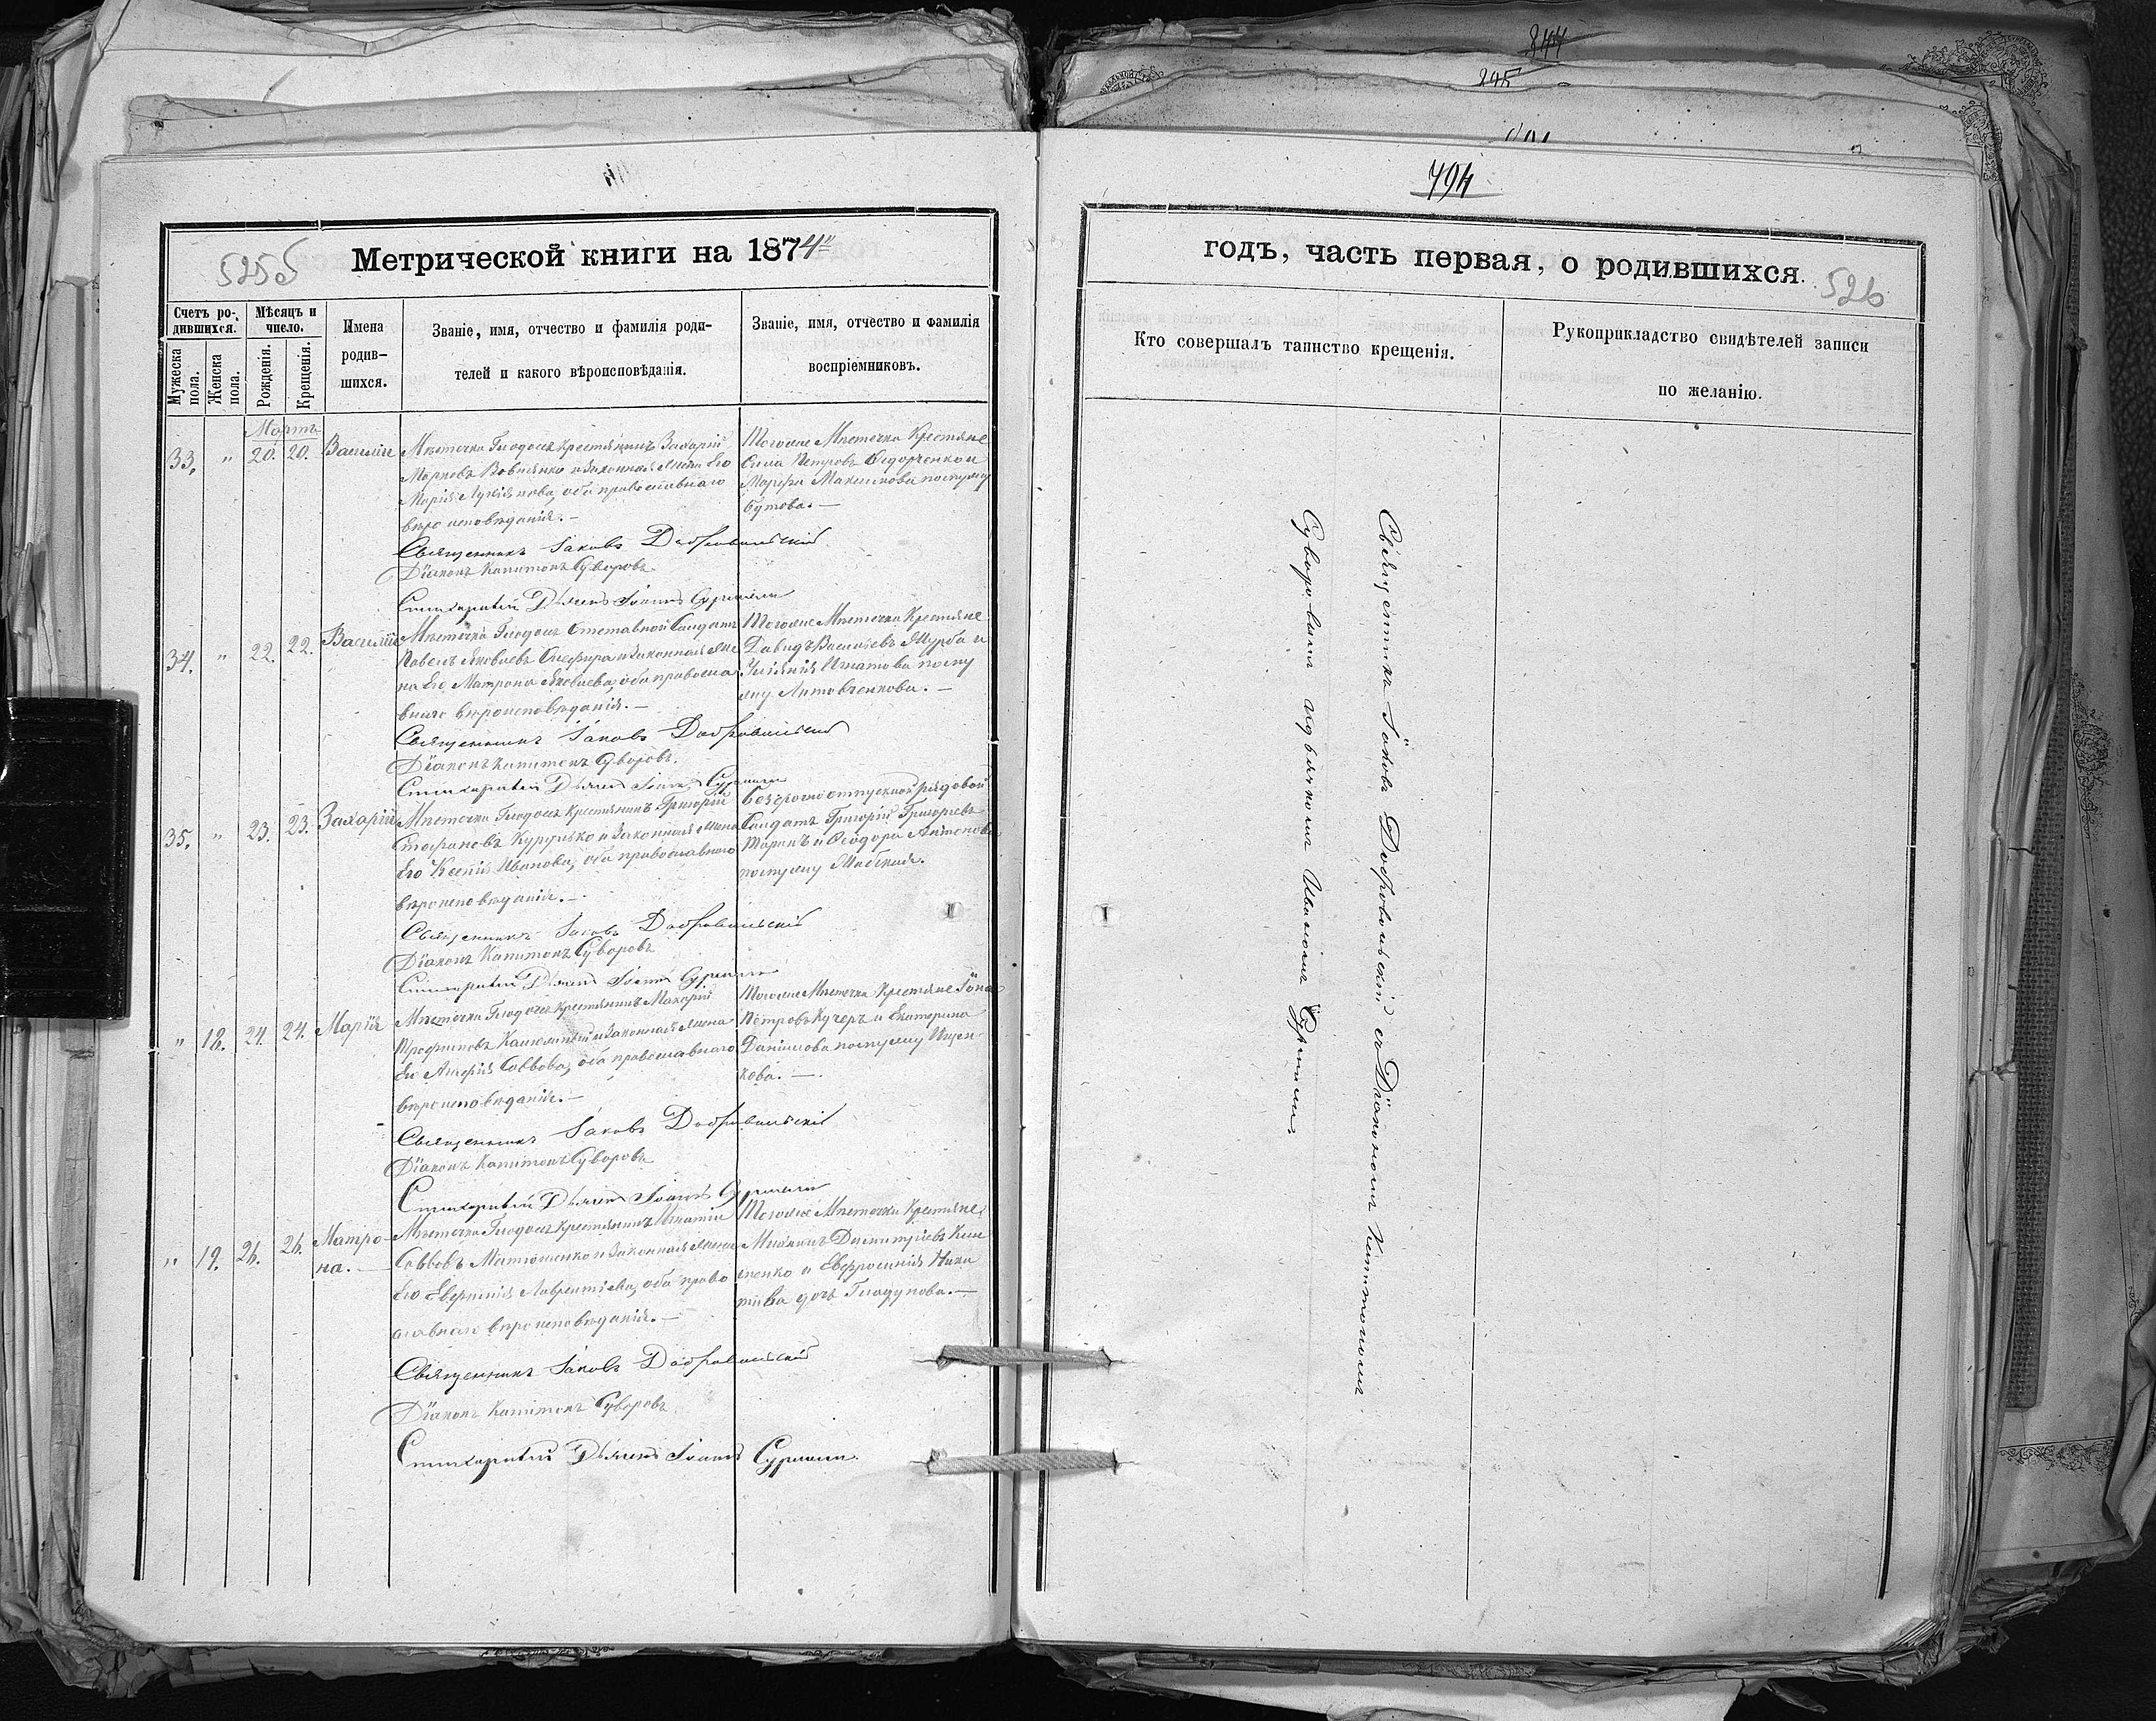 244
295
794
525об
Метрической книги на 1874"
годъ, часть первая, о родившихся.
526
Счетъ ро-
дившихся.
Мужеска пола.
Женска пола.
Мѣсяцъ и
число.
Рожденія.
Крещенія.
Имена
родив-
шихся.
Званіе, имя, отчество и фамилія роди-
телей и какого вѣроисповѣданія.
Званіе, имя, отчество и фамилія
воспріемниковъ.
Кто совершалъ таинство крещенія.
Рукоприкладство свидѣтелей записи
по желанію.
Мартъ
33. " 20. 20. Василій
Мѣстечка Глодосъ Крестьянинъ Захарій
Марковъ Вовнянко и законная жена Его
Марія Лукіянова, оба православнаго
вѣроисповѣданія.—
Тогоже Мѣстечка Крестьяне
Сила Петровъ Ѳедорченко и
Марѳа Максимова по мужу
Бутова.—
Священникъ Іаковъ Добровольскій
Діаконъ Капитонъ Суворовъ
Стихарный Дьячекъ Іоаннъ
34. " 22. 22. Василій
Мѣстечка Глодосъ Отставной Солдатъ
Павелъ Яковлевъ и законная же
на Его Матрона Яковлева, оба правосла
внаго вѣроисповѣданія.—
Тогоже Мѣстечка Крестьяне
Давидъ Васильевъ Журба и
Уліянія Игнатова по му
жу Литовченкова.—
Священникъ Іаковъ Добровольскій
Діаконъ Капитонъ Суворовъ.
Стихарный Дьячекъ Іоаннъ
35. " 23. 23. Захарій
Мѣстечка Глодосъ Крестьянинъ Григорій
Стефановъ и законная жена
Его Ксенія Иванова, оба православнаго
вѣроисповѣданія.—
Безсрочноотпускной рядовой
Солдатъ Григорій Григорьевъ
Таранъ и Ѳеодора Антонова
по мужу
Священникъ Іаковъ Добровольскій
Діаконъ Капитонъ Суворовъ
Стихарный Дьячекъ Іоаннъ
" 18. 24. 24. Марія
Мѣстечка Глодосъ Крестьянинъ Макарій
Трофимовъ и законная жена
Его Саввова, оба православнаго
вѣроисповѣданія.—
Тогоже Мѣстечка Крестьяне Іона
Петровъ Кучеръ и Екатерина
Даніилова по мужу Ищен-
кова.—
Священникъ Іаковъ Добровольскій
Діаконъ Капитонъ Суворовъ
Стихарный Дьячекъ Іоаннъ
" 19. 26. 26. Матро-
на.—
Мѣстечка Глодосъ Крестьянинъ Игнатій
Саввовъ Матюшенко и законная жена
Его Евгенія Лаврентіева, оба право
славнаго вѣроисповѣданія.—
Тогоже Мѣстечка Крестьяне,
Михаилъ Димитріевъ Кли
менко и Евфросинія Ники
тіева дочь Гладунова.—
Священникъ Іаковъ Добровольскій
Діаконъ Капитонъ Суворовъ
Стихарный Дьячекъ Іоаннъ
Священникъ Іаковъ Добровольскій съ Діакономъ Капитономъ
Суворовымъ и дьячкомъ Иваномъ